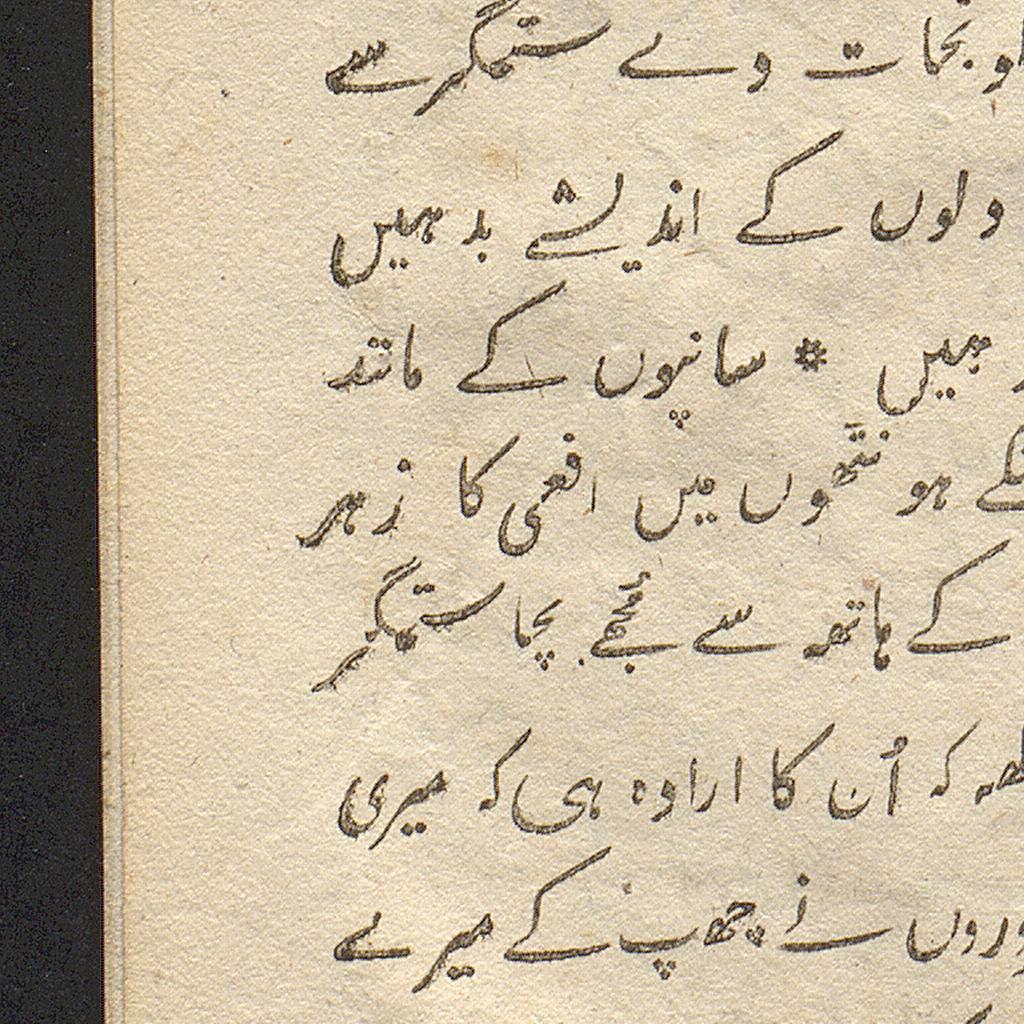 نجات دے ستمگر سے
دلوں کے اندیشے بد ہیں
ہیں * سانپوں کے مانند
ہونتھوں میں افعی کا زہر
کے ہاتھہ سے مُجھے بچا ستمگر
کہ اُن کا ارادہ ہی کہ میری
نے چھپ کے میرے